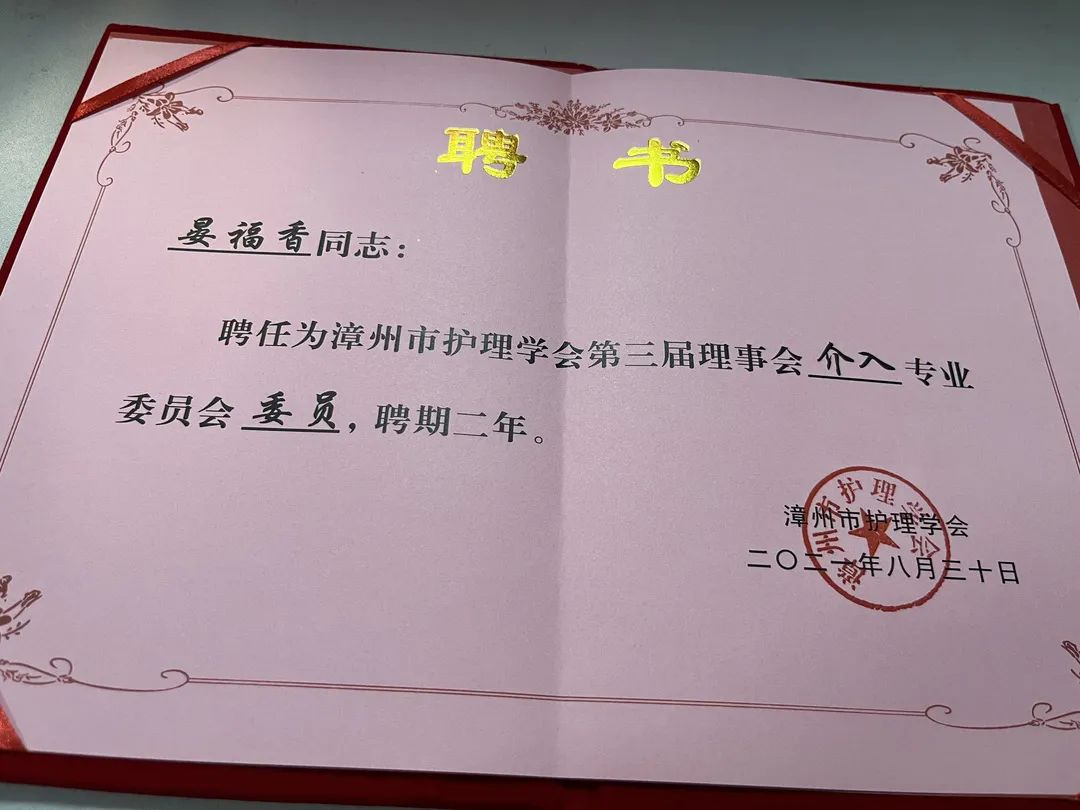 聘 书
晏福香同志：
聘任为漳州市护理学会第三届理事会介入专业
委员会委员，聘期二年。
漳州市护理学会
漳州市护理学会
二〇二一年八月三十日